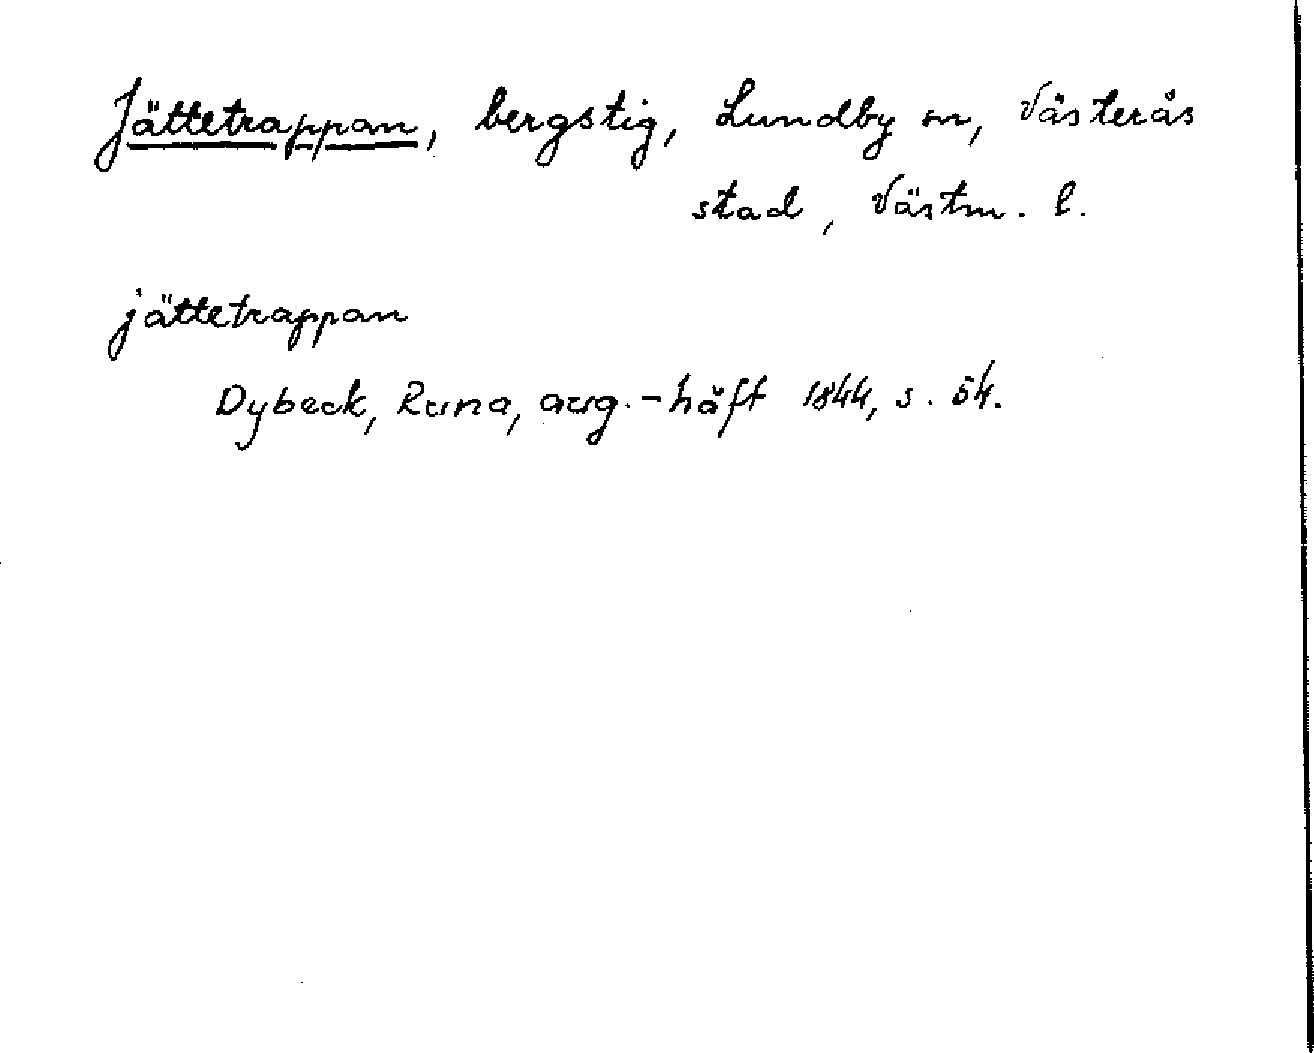 Jättetrappan, bergstig, Lundby sn, Västerås
stad, Västm. l.
jättetrappan
Dybeck, Runa, aug.-häft 1844, s. 54.